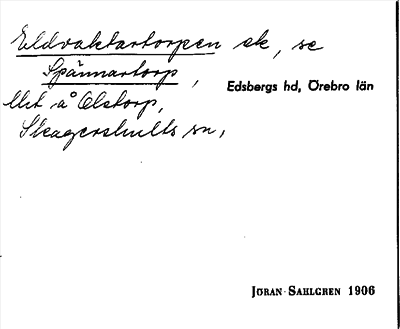 Eldvaktartorpen ek, se
Spännartorp,
Edsbergs hd, Örebro län
till å Olstorp,
Skagershults sn,
JÖRAN SAHLGREN 1906